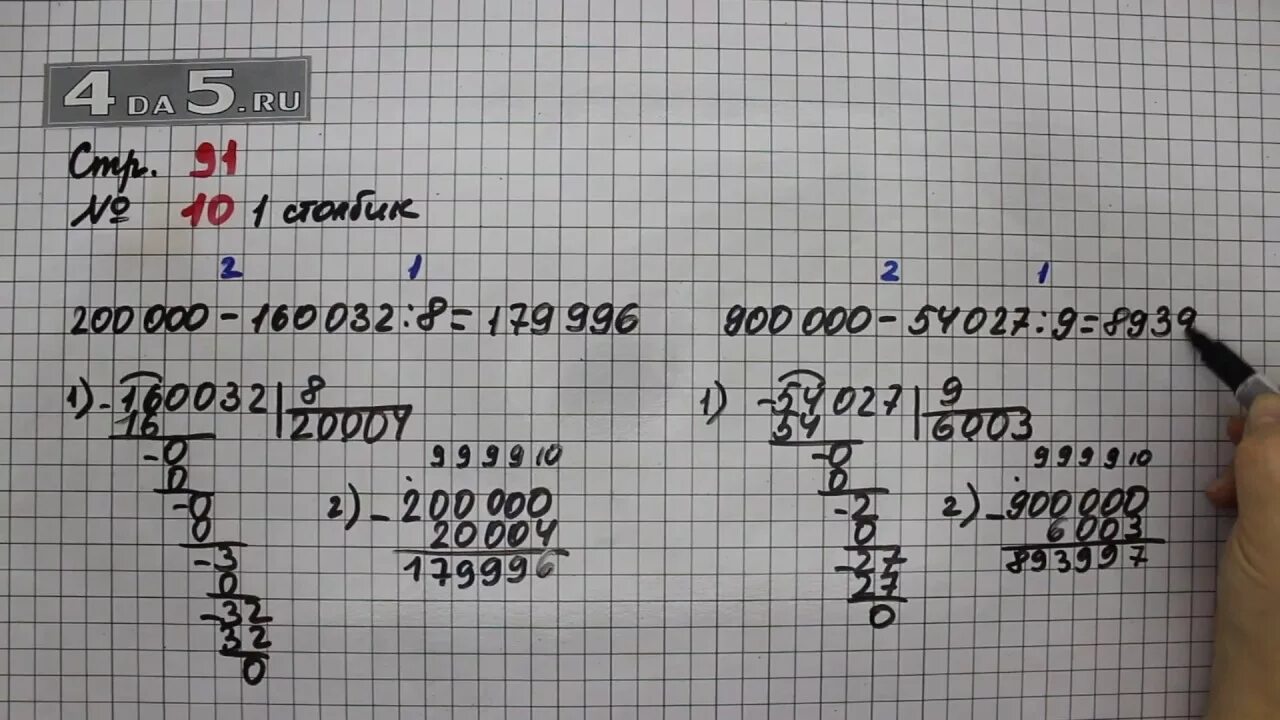 4DA5.RU
Стр. 91
№ 10 1 столбик
2 1
200 000 - 160 032 : 8 = 179 996
1) - 160032 | 8
16 20004
- 0
0
- 0
0
- 3
0
- 32
32
0
9 9 9 9 10
2) - 200 000
20 004
179996
2 1
900 000 - 54 027 : 9 = 8939
1) - 54 027 | 9
54 6003
- 0
0
- 2
0
- 27
27
0
9 9 9 9 10
2) - 900 000
6 003
893997